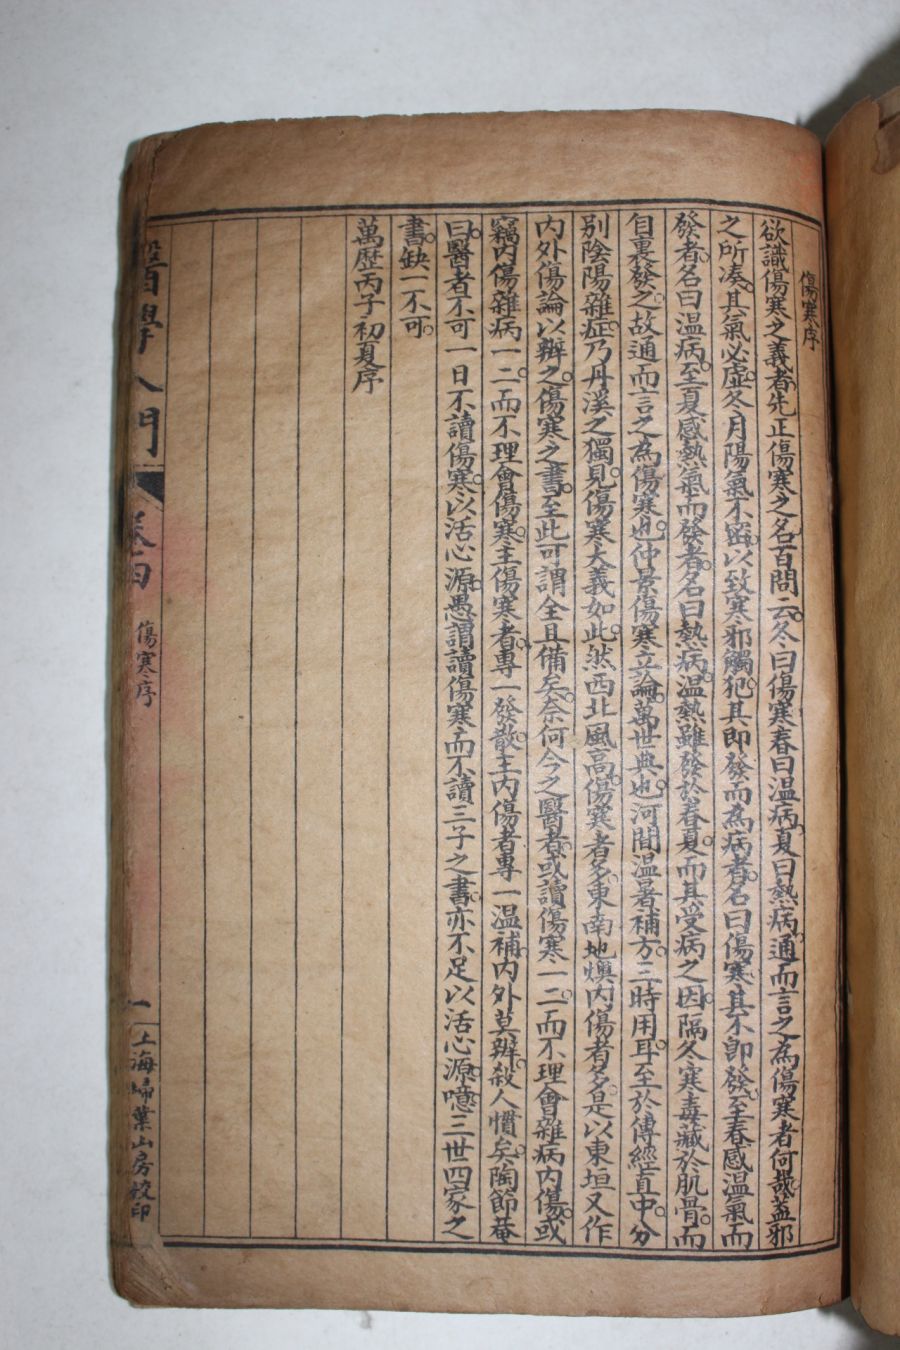 傷寒序
欲識傷寒之義者先正傷寒之名百問云冬曰傷寒春曰溫病夏曰熱病通而言之為傷寒者何哉蓋邪
之所湊其氣必虛冬月陽氣不密以致寒邪觸犯其即發而為病者名曰傷寒其不即發至春感溫氣而
發者名曰溫病至夏感熱氣而發者名曰熱病溫熱雖發於春夏而其受病之因隔冬寒毒藏於肌骨而
自裏發之故通而言之為傷寒也仲景傷寒立論萬世典也河間溫暑補方三時用耳至於傳經直中分
別陰陽雜症乃丹溪之獨見傷寒大義如此然西北風高傷寒者多東南地燠內傷者多是以東垣又作
內外傷論以辨之傷寒之書至此可謂全且備矣奈何今之醫者或讀傷寒一二而不理會雜病內傷或
竊內傷雜病一二而不理會傷寒主傷寒者專一發散主內傷者專一溫補內外莫辨殺人慣矣陶節菴
曰醫者不可一日不讀傷寒以活心源愚謂讀傷寒而不讀三子之書亦不足以活心源噫三世四家之
書缺一不可
萬歷丙子初夏序
醫學入門
卷四
傷寒序
一
上海埽葉山房校印